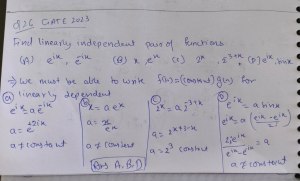 Q26 GATE 2023
Find linearly independent pairs of functions
(A) e^{ix}, e^{-ix} (B) x, e^x (C) 2^x, 2^{3+x} (D) e^{ix}, sinx
→ We must be able to write f(x)=(constant) g(x) for
linearly dependent
(a) e^{ix} = a e^{-ix}
a = e^{2ix}
a ≠ constant
(b) x = a e^x
a = x/e^x
a ≠ constant
Ans A, B, D
(c) 2^x = a 2^{3+x}
a = 2^{x+3-x}
a = 2^3 constant
(d) e^{ix} = a sinx
e^{ix} = a (e^{ix} - e^{-ix} / 2i)
2i e^{ix} / e^{ix} - e^{-ix} = a
a ≠ constant